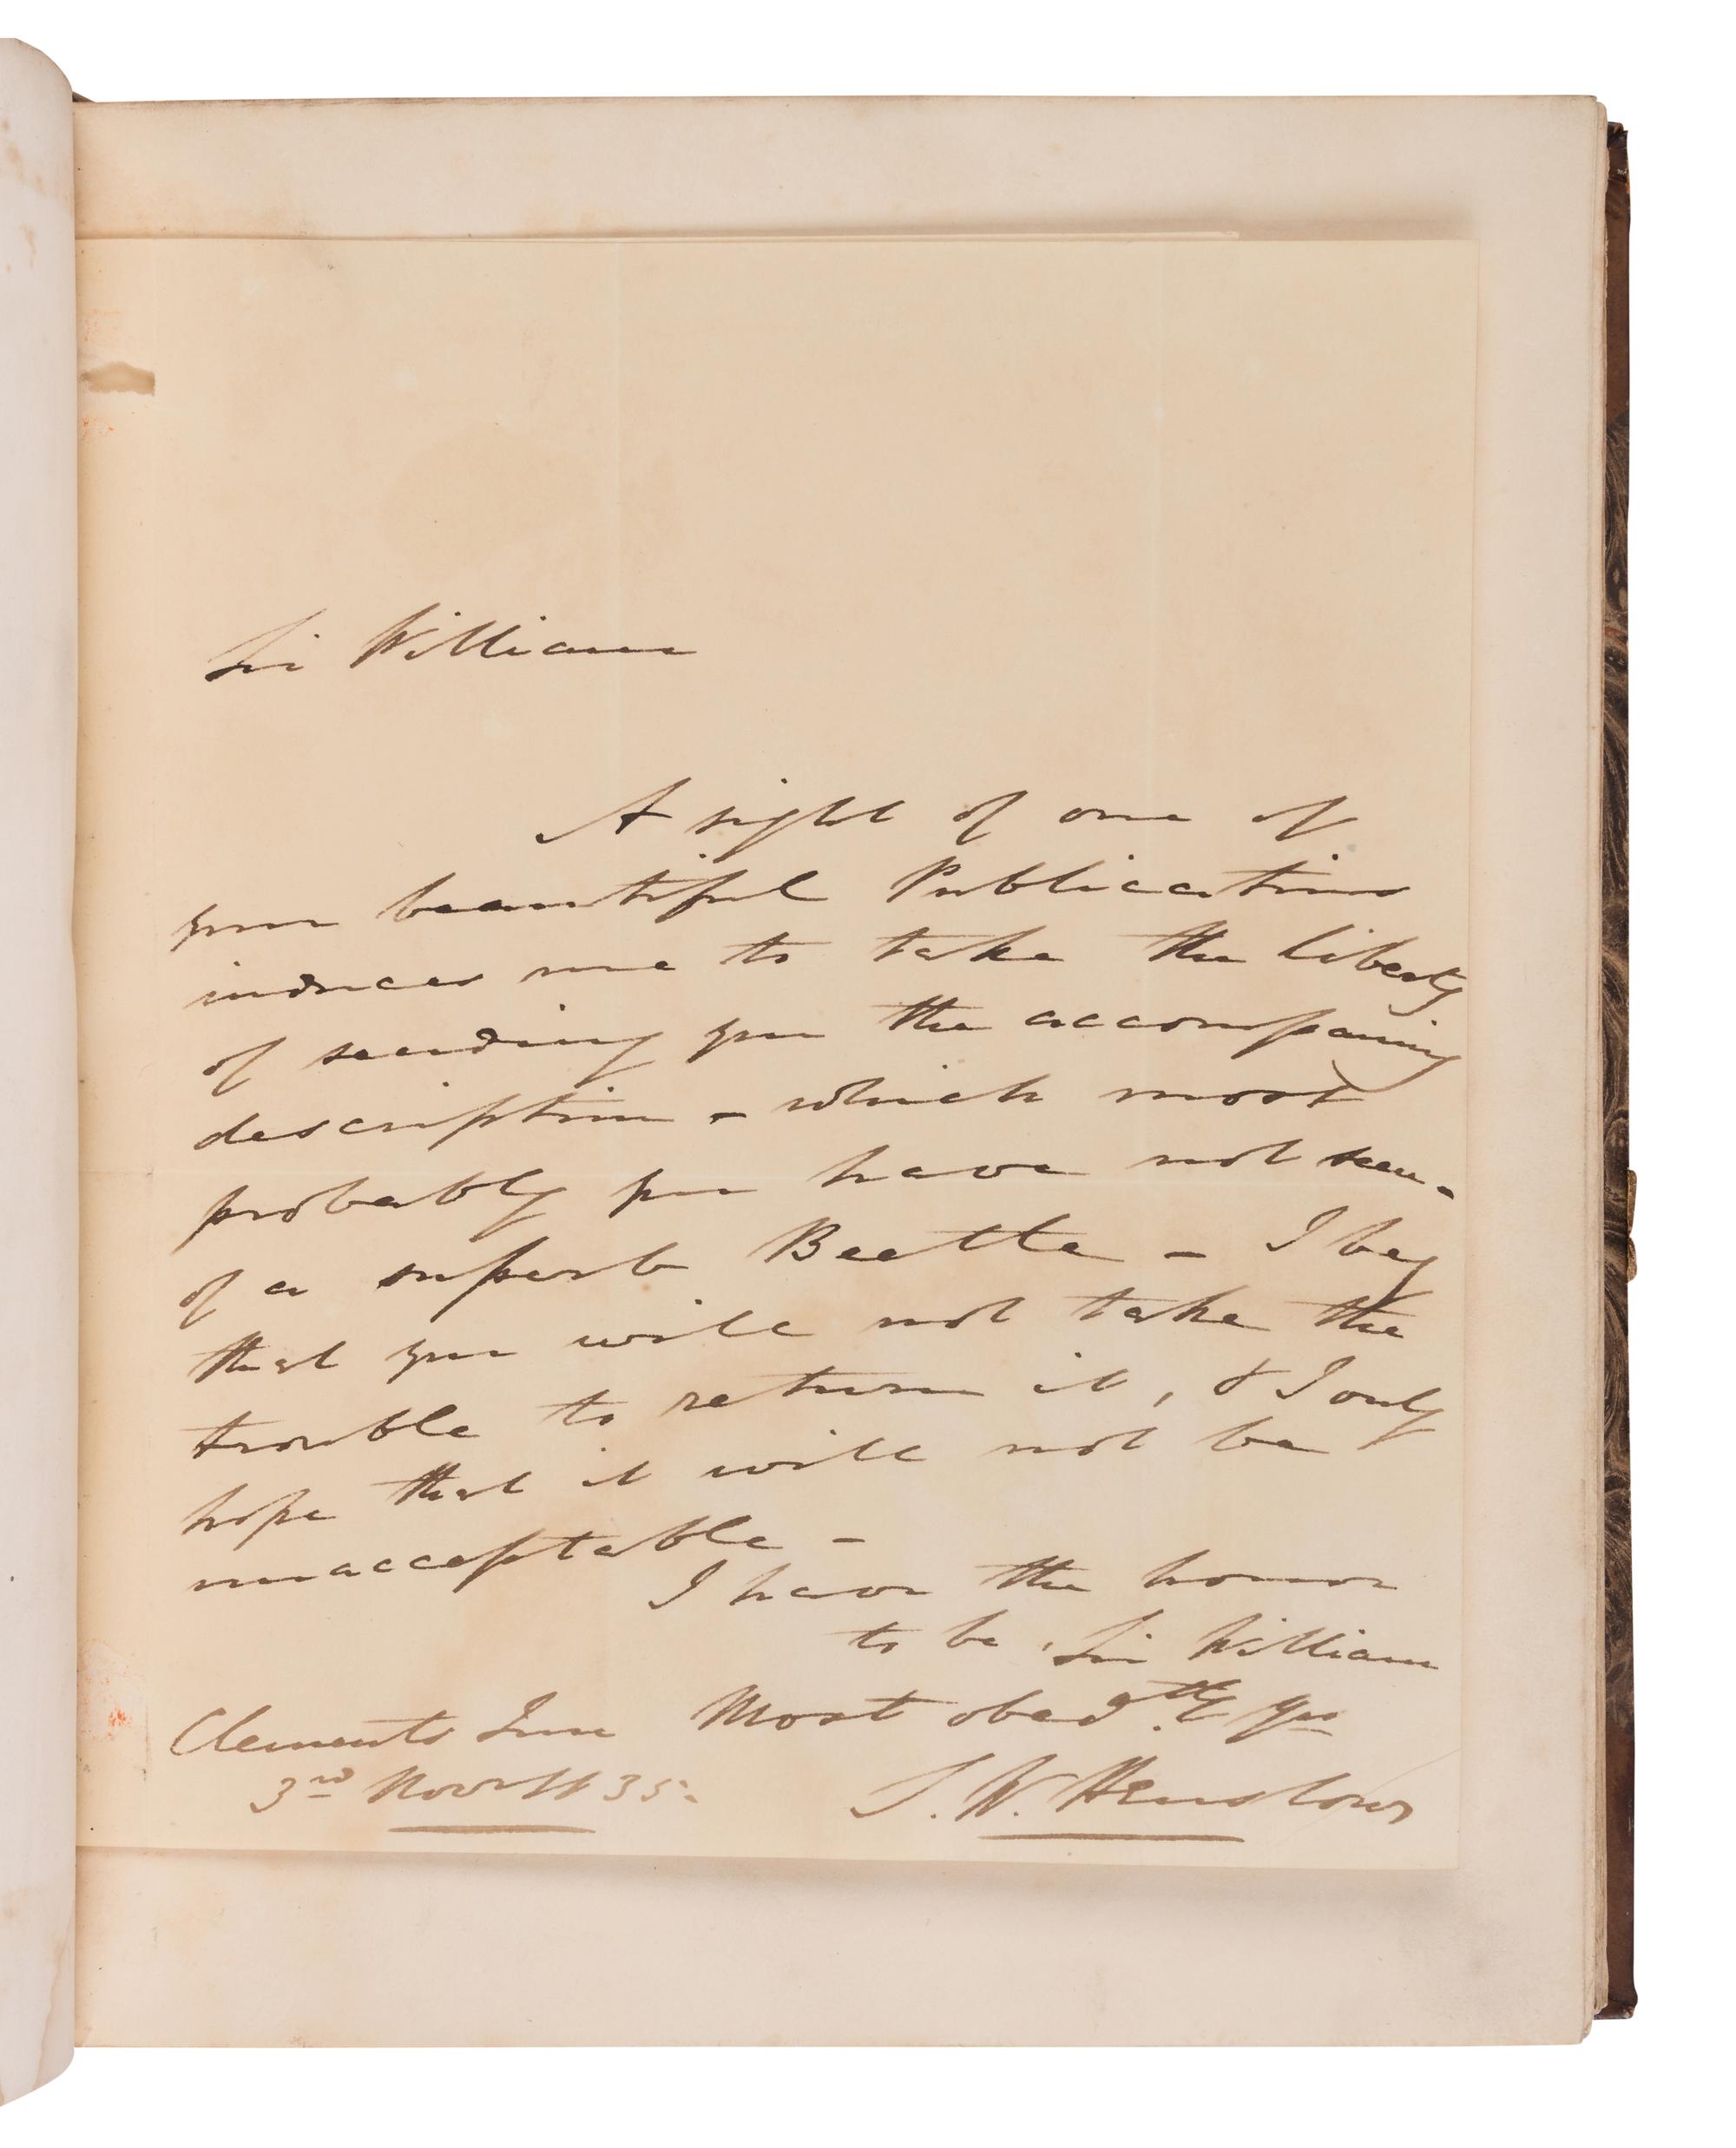 Sir William
A sight of one of
your beautiful Publications
induces me to take the liberty
of sending you the accompaning
description - which most
probably you have not seen -
of a superb Beetle - I beg
that you will not take the
trouble to return it, & I only
hope that it will not be
unacceptable -
I have the honor
to be, Sir William
Most obedtly Yrs
Clements Inn
3rd Novr 1835
J. W. Henslow